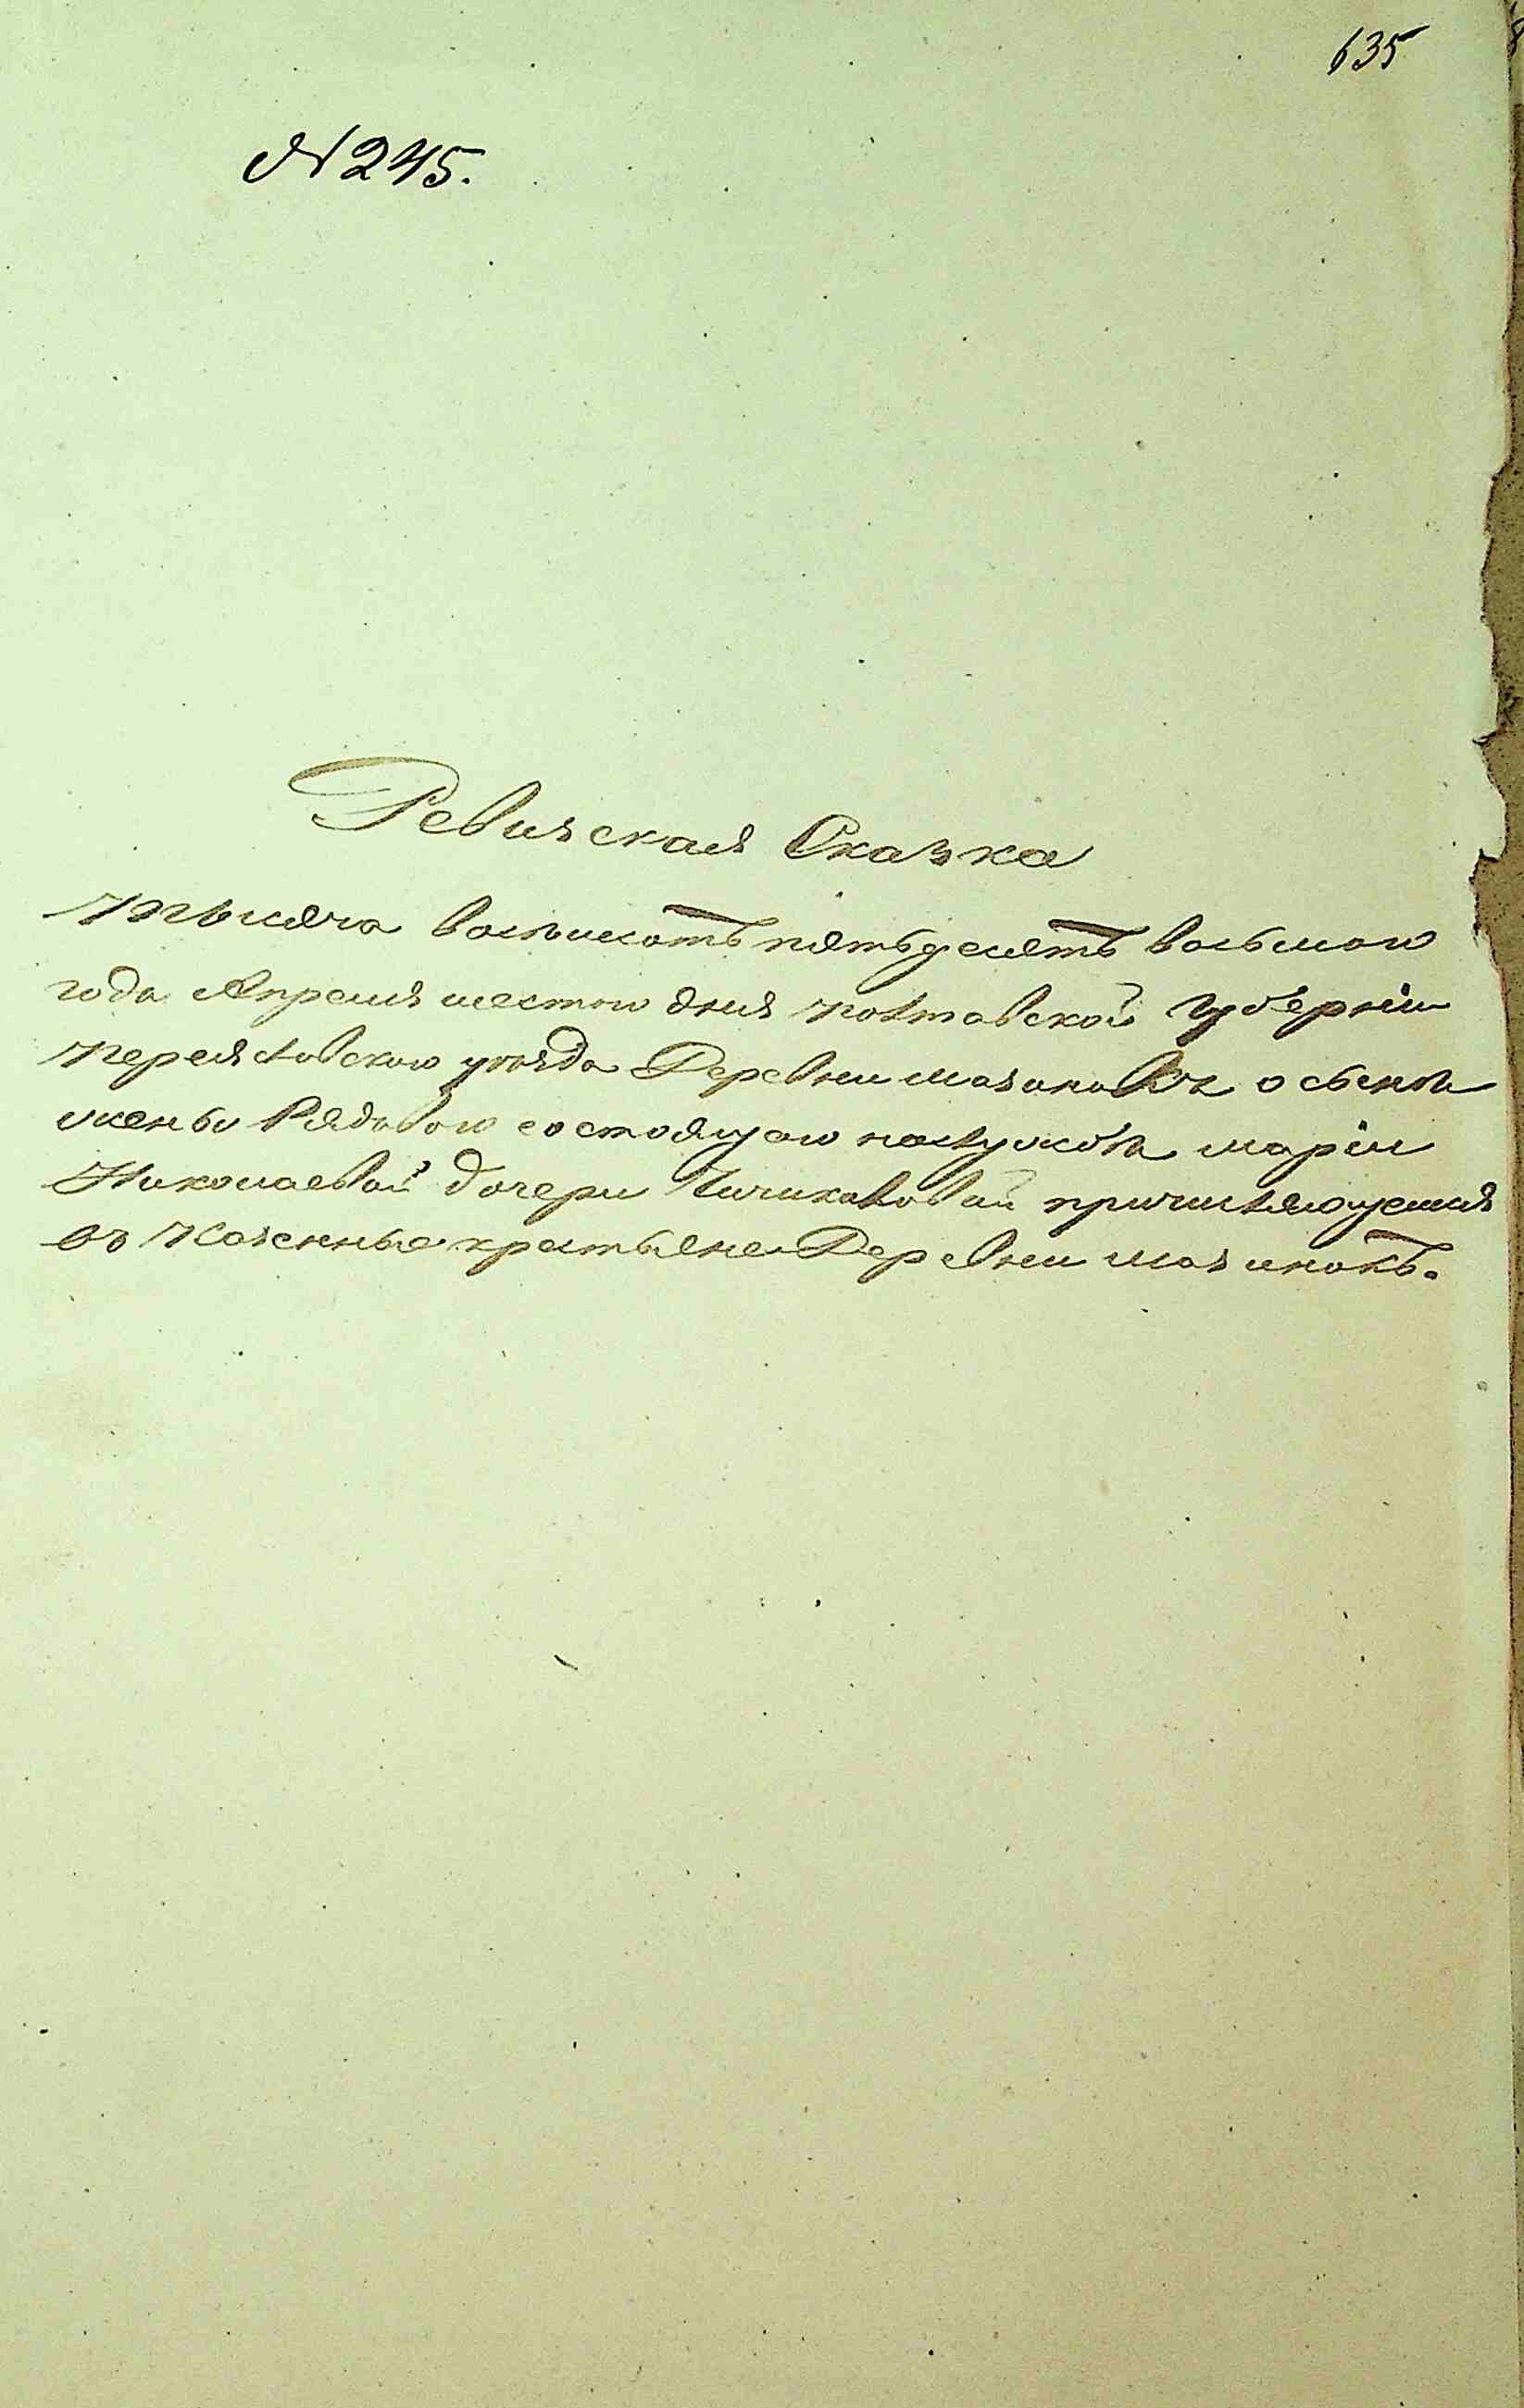 635
N 245.
Ревизская Сказка
тысяча восьмсотъ пятьдесятъ восьмого
года Апреля шестого дня полтавской губерніи
переяславского уезда Деревни о сыне
жены Рядового состоящего наслужбе маріи
Николаевой дочери причисляющемся
въ Казенные крестьяне Деревни